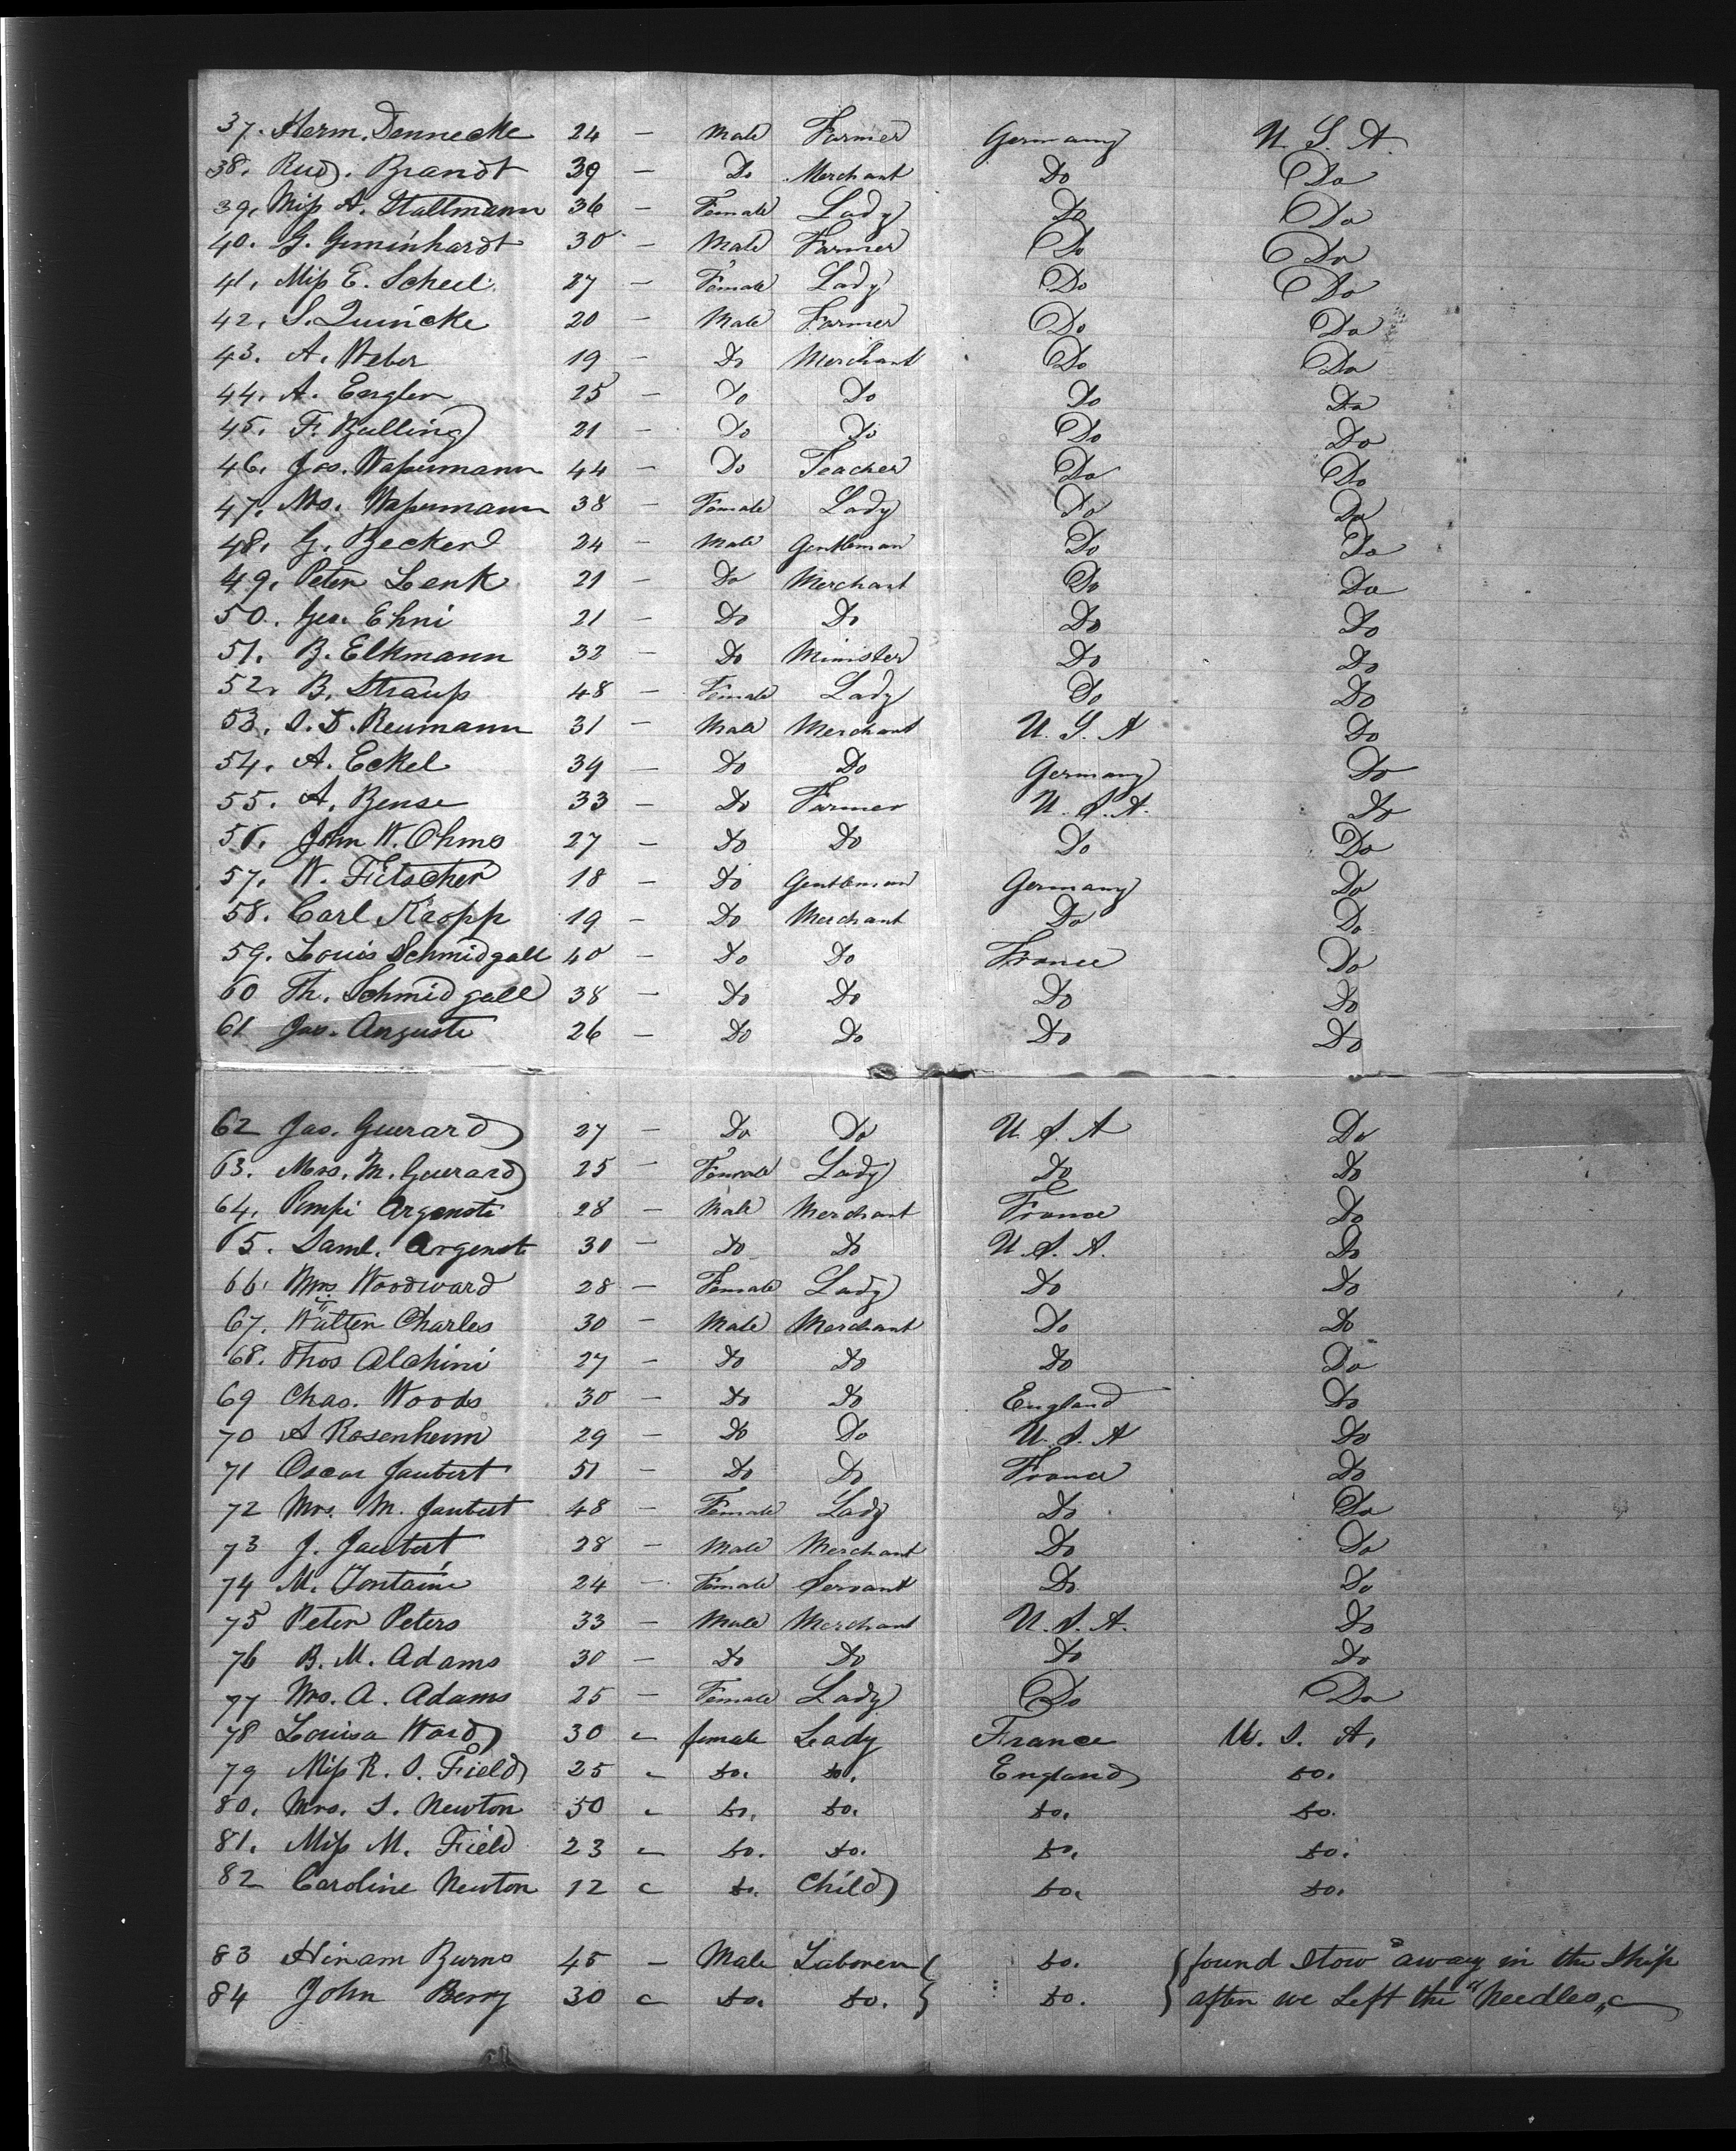 37. Herm. Dennecke 24 – Male Farmer Germany U. S. A.
38. Rud. Brandt 39 – Do Merchant Do Do
39. Miss A. Stallmann 36 – Female Lady Do Do
40. G. Geminhardt 30 – Male Farmer Do Do
41. Miss E. Scheel 27 – Female Lady Do Do
42. S. Quincke 20 – Male Farmer Do Do
43. A. Weber 19 – Do Merchant Do Do
44. A. Engler 25 – Do Do Do Do
45. F. Balling 21 – Do Do Do Do
46. Jos. Wassermann 44 – Do Teacher Do Do
47. Mrs. Wassermann 38 – Female Lady Do Do
48. G. Becker 24 – Male Gentleman Do Do
49. Peter Lenk 21 – Do Merchant Do Do
50. Geo. Ehni 21 – Do Do Do Do
51. B. Elkmann 32 – Do Minister Do Do
52. B. Strauss 48 – Female Lady Do Do
53. S. D. Reumann 31 – Male Merchant U. S. A Do
54. A. Eckel 39 – Do Do Germany Do
55. A. Bense 33 – Do Farmer U. S. A. Do
56. John W. Ohms 27 – Do Do Do Do
57. W. Fitscher 18 – Do Gentleman Germany Do
58. Carl Kropp 19 – Do Merchant Do Do
59. Louis Schmidgall 40 – Do Do France Do
60 Th. Schmidgall 38 – Do Do Do Do
61 Jas. Auguste 26 – Do Do Do Do
62 Jas. Guerard 27 – Do Do U. S. A Do
63. Mrs. M. Guerard 25 – Female Lady Do Do
64. Argenoti 28 – Male Merchant France Do
65. Saml. Argenot 30 – Do Do U. S. A. Do
66. Mrs Woodward 28 – Female Lady Do Do
67. Walter Charles 30 – Male Merchant Do Do
68. Thos Alchini 27 – Do Do Do Do
69 Chas. Woods 30 – Do Do England Do
70 A Rosenheim 29 – Do Do U. S. A Do
71 Oscar Jaubert 51 – Do Do France Do
72 Mrs. M. Jaubert 48 – Female Lady Do Do
73 J. Jaubert 28 – Male Merchant Do Do
74 M. Fontaine 24 – Female Servant Do Do
75 Peter Peters 33 – Male Merchant U. S. A. Do
76 B. M. Adams 30 – Do Do Do Do
77 Mrs. A. Adams 25 – Female Lady Do Do
78 Louisa Ward 30 – female Lady France U. S. A.
79 Miss R. S. Field 25 – do. do. England do.
80. Mrs. S. Newton 50 – do. do. do. do.
81. Miss M. Field 23 – do. do. do. do.
82 Caroline Newton 12 – do. Child do. do.
83 Hiram Burns 45 – Male Laborer do. found stow away in the Ship
84 John Berry 30 – do. do. do. after we left the "Needles"